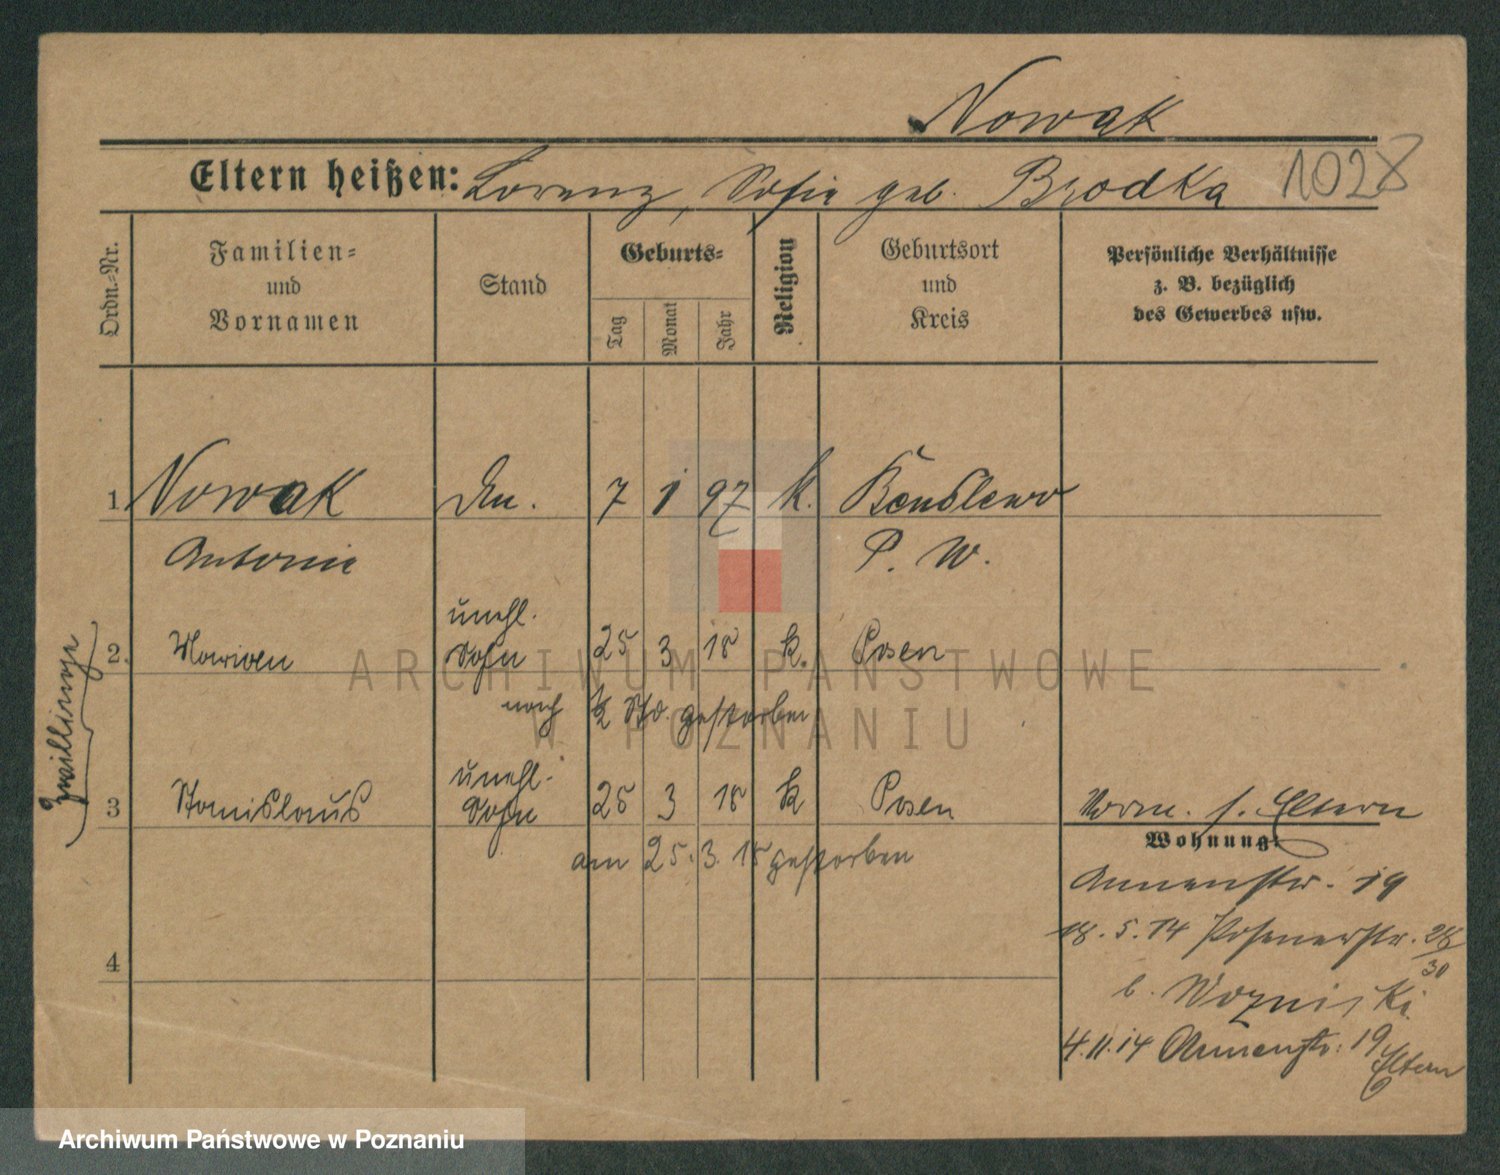 Nowak
Eltern heißen: Lorenz, Sofie geb. Brodka 1028
Ordn.-Nr.
Familien- und Vornamen
Stand
Geburts-
Tag
Monat
Jahr
Religion
Geburtsort und Kreis
Persönliche Verhältnisse z. B. bezüglich des Gewerbes usw.
1 Nowak 7 1 97 k.
Antonie P. W.
unehl.
2. Marian Sohn 25 3 18 k. Posen
nach ½ Std. gestorben
Zwillinge
unehl.
3 Stanislaus Sohn 25 3 18 k Posen
am 25. 3. 18 gestorben
4
Vorm. s. Eltern
Wohnung:
Annenstr. 19
18. 5. 14 Posenerstr. 28/30
b.
4.11.14 Annenstr. 19 Eltern
ARCHIWUM PAŃSTWOWE
W POZNANIU
Archiwum Państwowe w Poznaniu